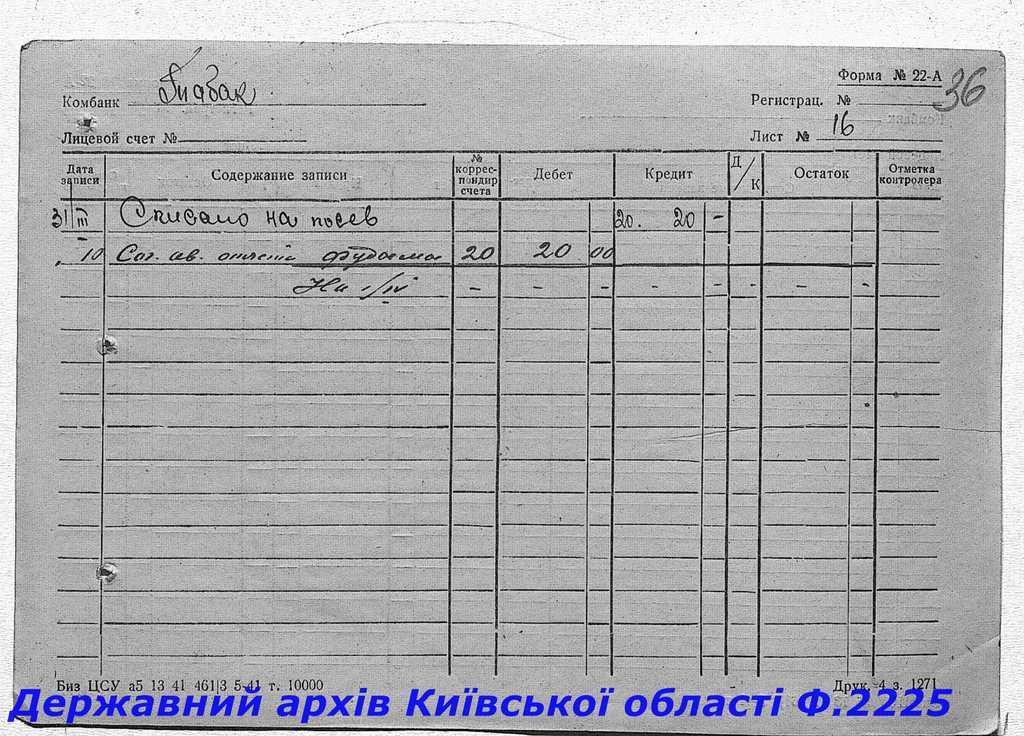 Форма № 22-А
36
Комбанк Табак
Регистрац. №
Лицевой счет №
Лист № 16
Дата записи
Содержание записи
№ коррес-пондир счета
Дебет
Кредит
Д/К
Остаток
Отметка контролера
31/III Списано на посев 20. 20 -
" 10 20 20 00
На 1/IV - - - - - - - -
Биз ЦСУ а5 13 41 461|3 5-41 т. 10000
Друк. 4 з. 1271
Державний архів Київської області Ф.2225